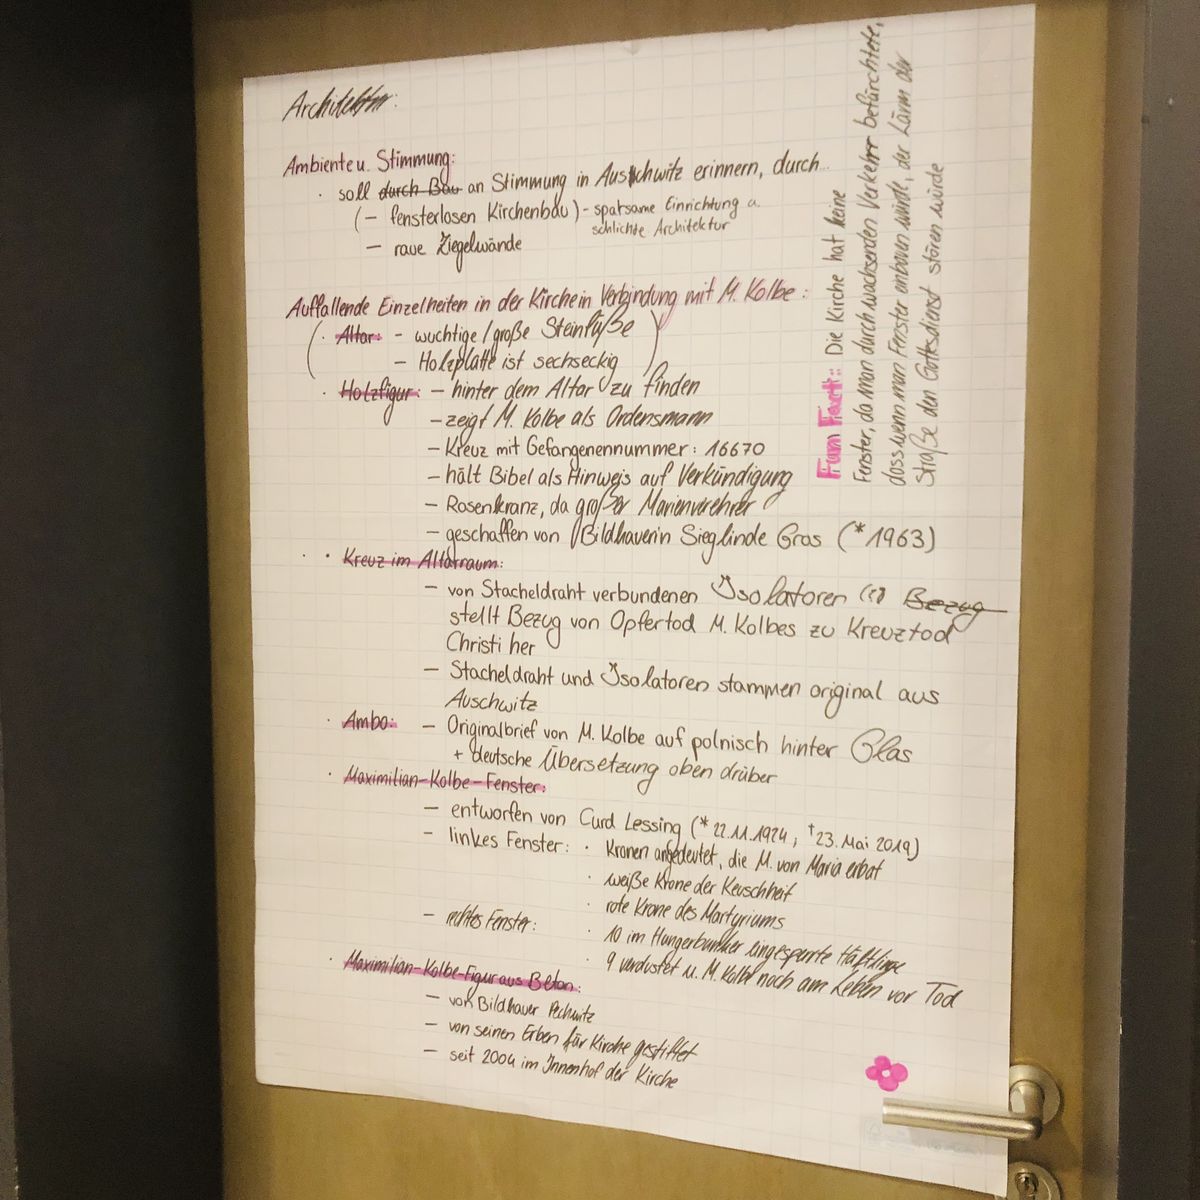 Architektur:
Ambiente u. Stimmung:
· soll durch Bau an Stimmung in Auschwitz erinnern, durch...
(– fensterlosen Kirchenbau) – sparsame Einrichtung u.
schlichte Architektur
– raue Ziegelwände
Auffallende Einzelheiten in der Kirche in Verbindung mit M. Kolbe:
· Altar: – wuchtige / große Steinfüße
– Holzplatte ist sechseckig
· Holzfigur: – hinter dem Altar zu finden
– zeigt M. Kolbe als Ordensmann
– Kreuz mit Gefangenennummer: 16670
– hält Bibel als Hinweis auf Verkündigung
– Rosenkranz, da großer Marienverehrer
– geschaffen von Bildhauerin Sieglinde Gros (*1963)
· Kreuz im Altarraum:
– von Stacheldraht verbundenen Isolatoren Bezug
stellt Bezug von Opfertod M. Kolbes zu Kreuztod
Christi her
– Stacheldraht und Isolatoren stammen original aus
Auschwitz
· Ambo: – Originalbrief von M. Kolbe auf polnisch hinter Glas
+ deutsche Übersetzung oben drüber
· Maximilian-Kolbe-Fenster:
– entworfen von Curd Lessing (*22.11.1924, †23. Mai 2019)
– linkes Fenster: · Kronen angedeutet, die M. von Maria erbat
· weiße Krone der Keuschheit
· rote Krone des Martyriums
– rechtes Fenster: · 10 im Hungerbunker eingesperrte Häftlinge
· 9 verdustet u. M. Kolbe noch am Leben vor Tod
· Maximilian-Kolbe-Figur aus Beton:
– von Bildhauer
– von seinen Erben für Kirche gestiftet
– seit 2004 im Innenhof der Kirche
Fun Fact: Die Kirche hat keine
Fenster, da man durch wachsenden Verkehr befürchtete,
dass wenn man Fenster anbauen würde, der Lärm der
Straße den Gottesdienst stören würde